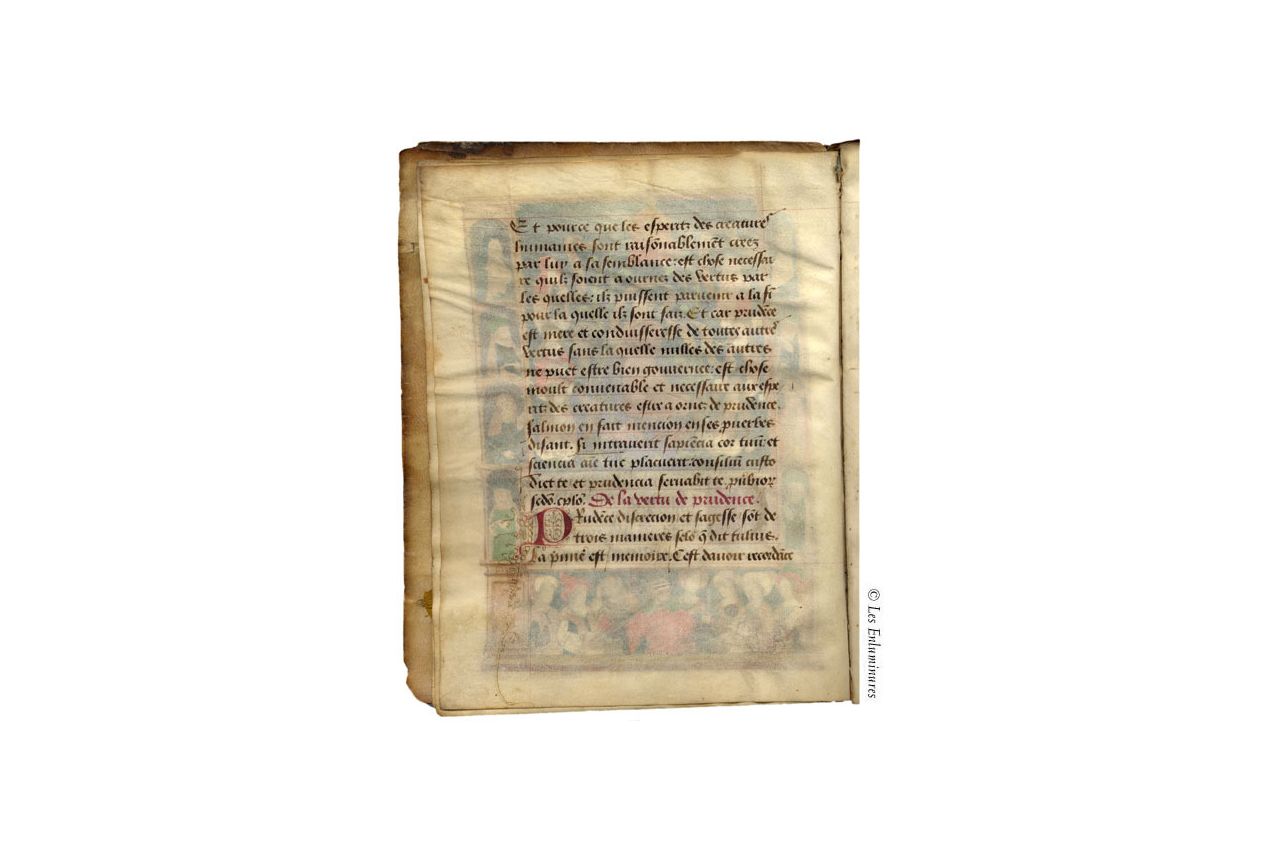 Et pource que les esperitz des creatures
humaines sont raisõnablemẽt creez
par luy a sa semblance: est chose necessai
re quilz soient aournez des vertus par
les quelles: ilz puissent paruenir a la fĩ
pour la quelle ilz sont faiz. Et car prudẽce
est mere et conduisseresse de toutes autres
vertus sans la quelle nulles des autres
ne puet estre bien gouuernee: est chose
moult conuenable et necessaire aux espe
ritz des creatures estre aornez de prudence.
Salmon en fait mencion en ses puerbes
disant. Si intrauerit sapiẽcia cor tuũ: et
sciencia aĩe tue placuerit: consiliũ custo
diet te et prudencia seruabit te. púbior
scdo. cplo. De la vertu de prudence.
Prudẽce discrecion et sagesse sõt de
trois manieres selõ q̃ dit tulius.
La p̃mie est memoire. Cest dauoir recordãce
© Les Enluminures